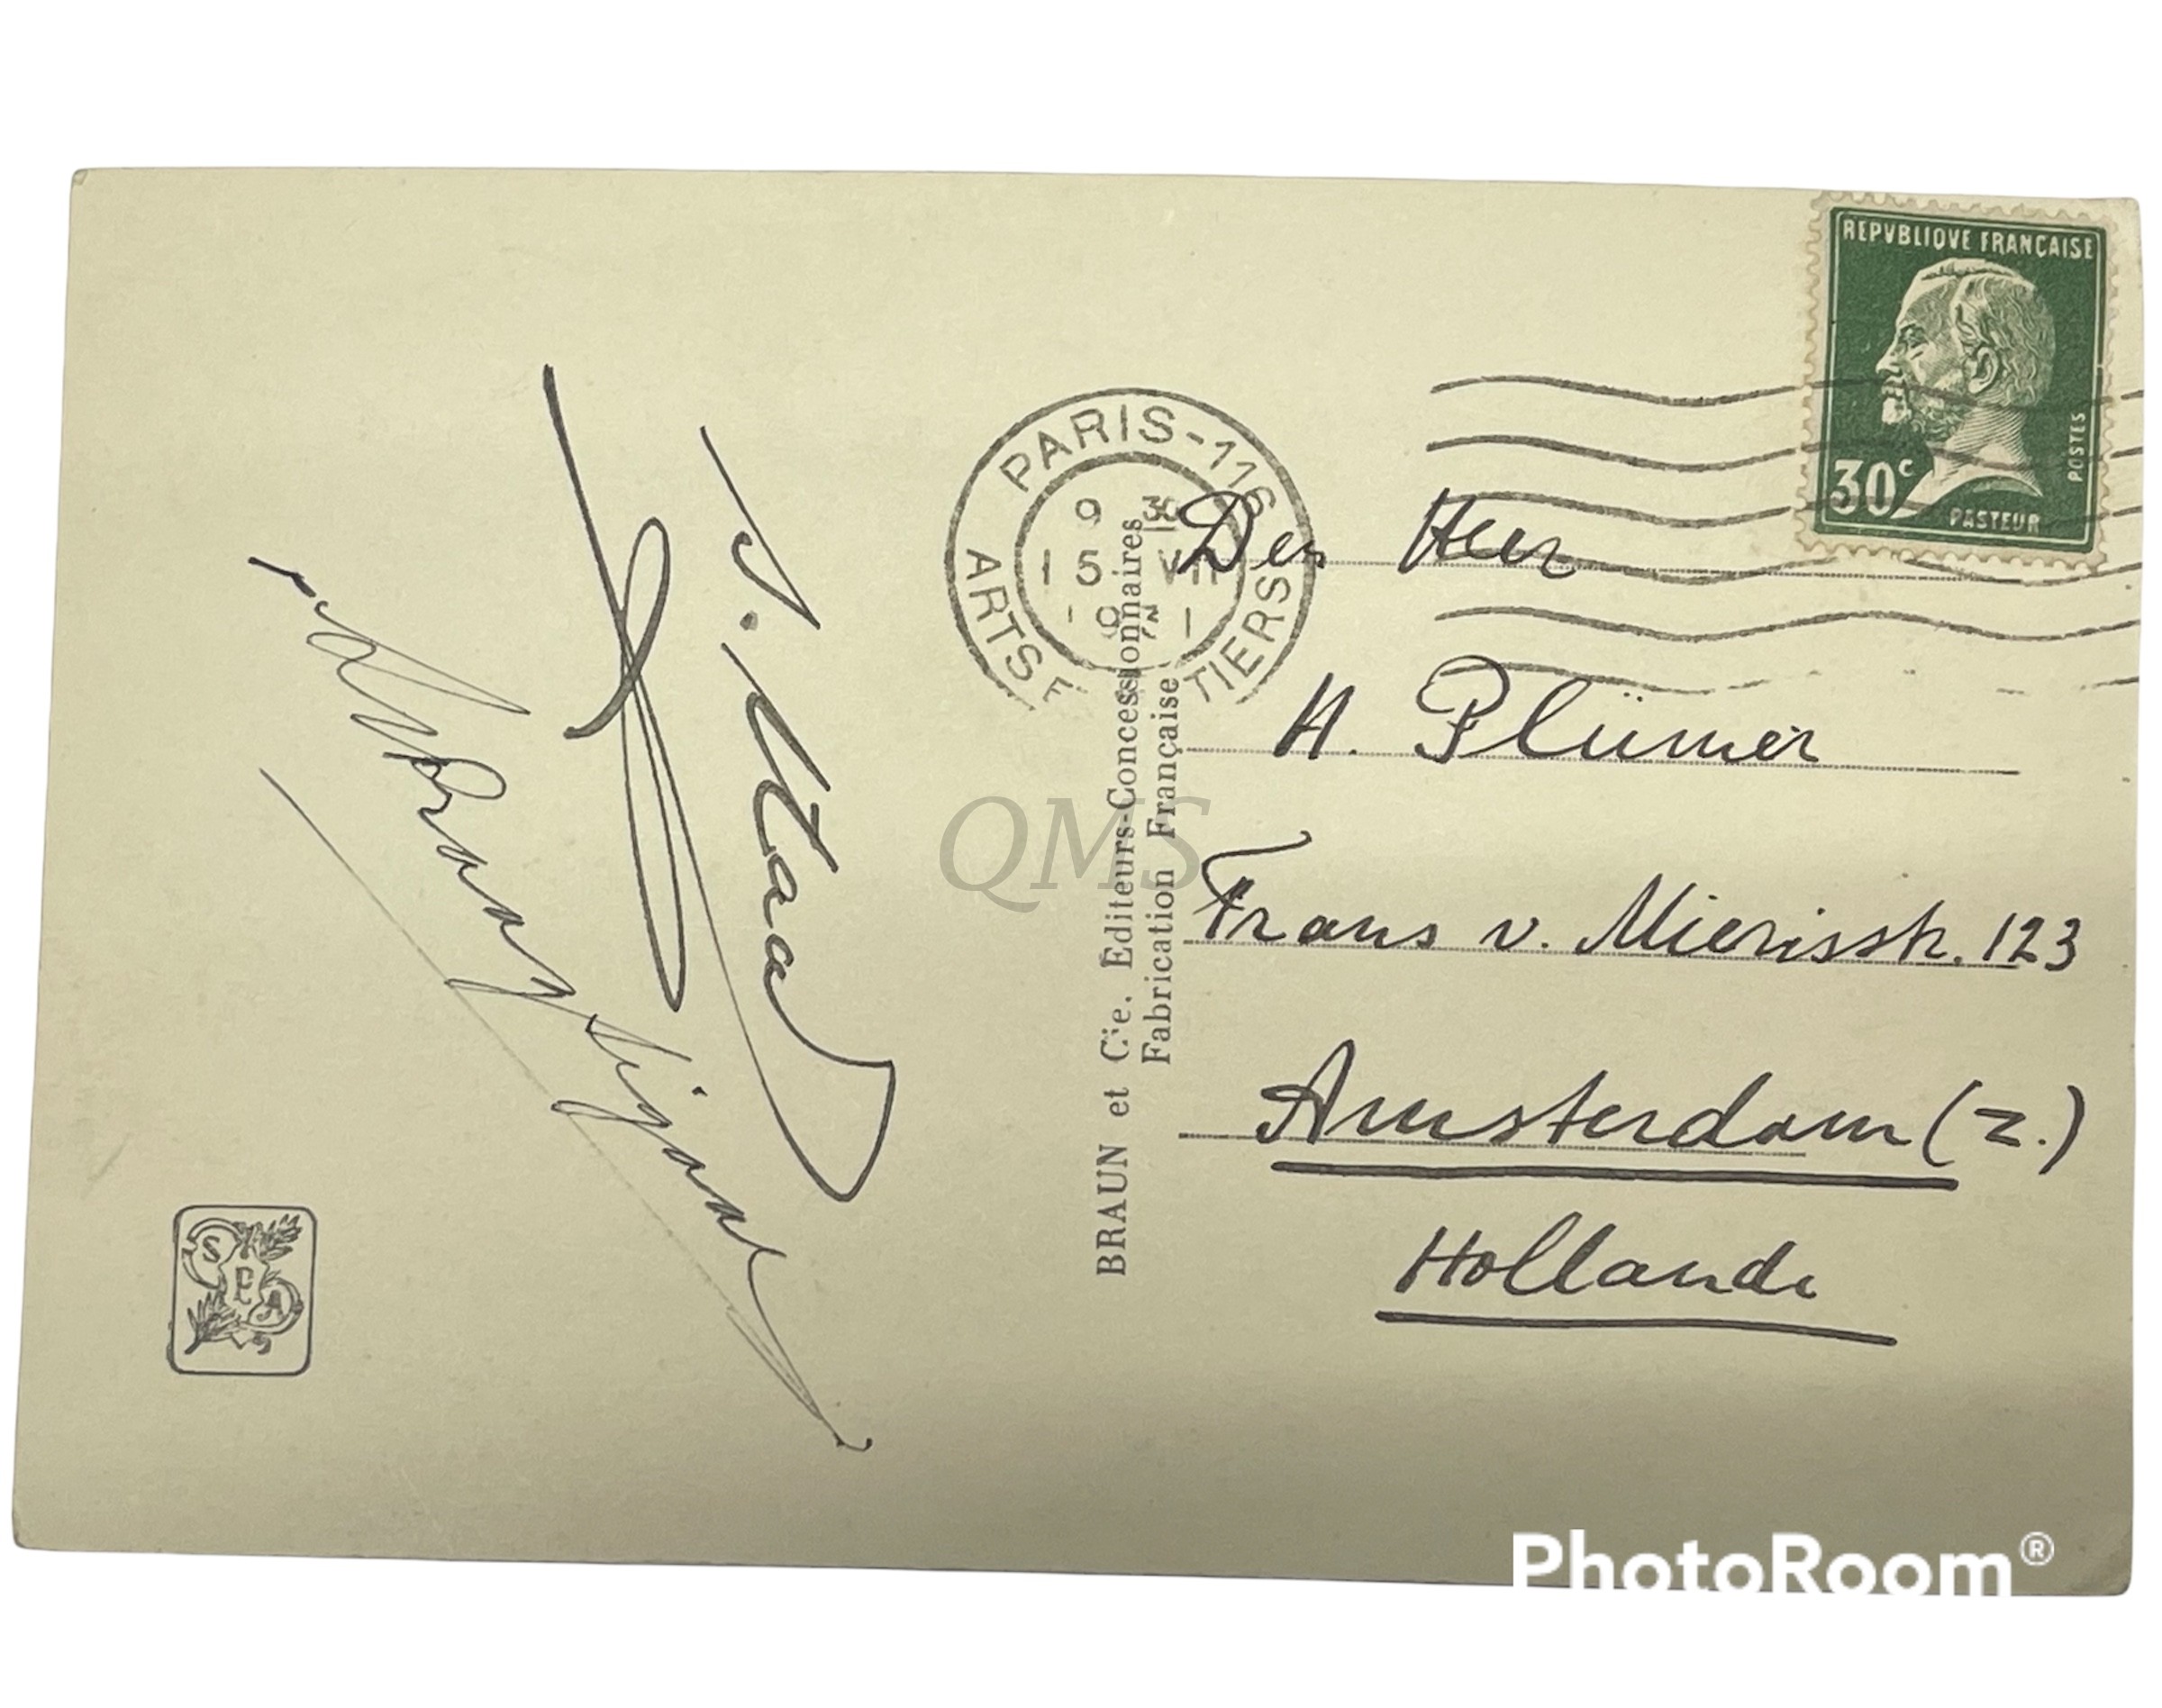 REPVBLIQVE FRANÇAISE
POSTES
30c
PASTEUR
PARIS-116
ARTS
TIERS
9 30
15 VII
Den Heer
H. Plümer
Frans v. Mierisstr. 123
Amsterdam (Z.)
Hollande
BRAUN et Cie. Editeurs-Concessionnaires
Fabrication Française
SPA
QMS
PhotoRoom®